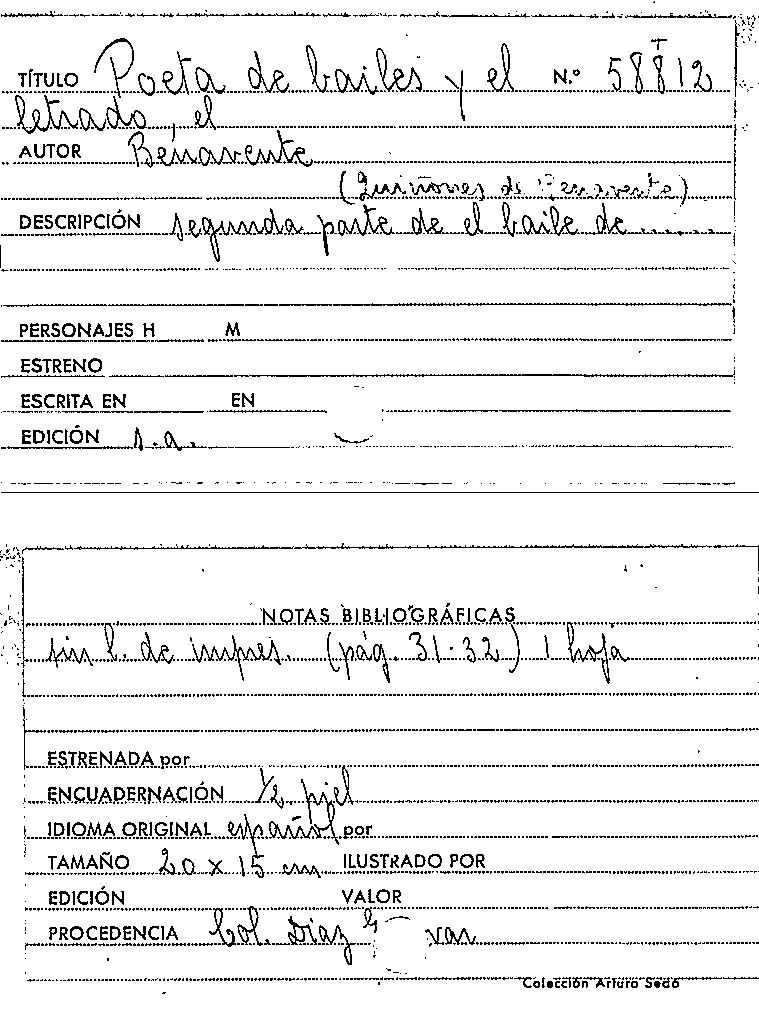 TÍTULO Poeta de bailes y el N.º 58812
T
letrado, el
AUTOR Benavente
(Quiñones de Benavente)
DESCRIPCIÓN segunda parte de el baile de ......
PERSONAJES H M
ESTRENO
ESCRITA EN EN
EDICIÓN s.a.
NOTAS BIBLIOGRÁFICAS
sin l. de impres. (pág. 31-32) 1 hoja
ESTRENADA por
ENCUADERNACIÓN 1/2 piel
IDIOMA ORIGINAL español por
TAMAÑO 20 x 15 cm ILUSTRADO POR
EDICIÓN VALOR
PROCEDENCIA Col. Díaz
Colección Arturo Sedó